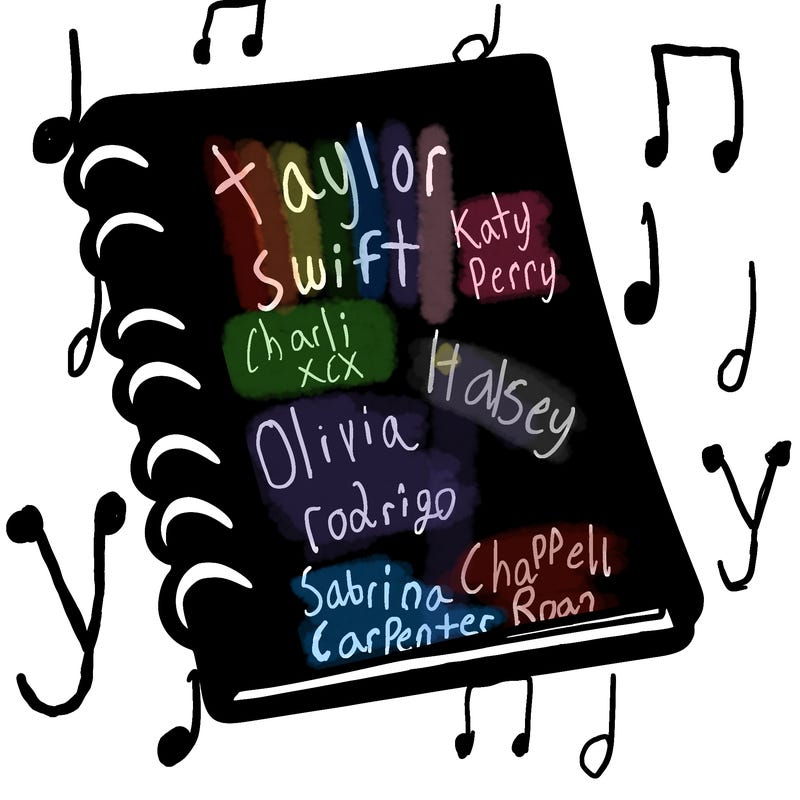 taylor
swift
Katy
Perry
Charli
xcx
Halsey
Olivia
rodrigo
Sabrina
Carpenter
Chappell
Roan
y
y